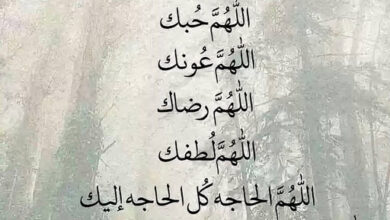 اللَّهُمَّ حُبك
اللَّهُمَّ عُونك
اللَّهُمَّ رضاك
اللَّهُمَّ لُطفك
اللَّهُمَّ الحاجه كُل الحاجه إليك